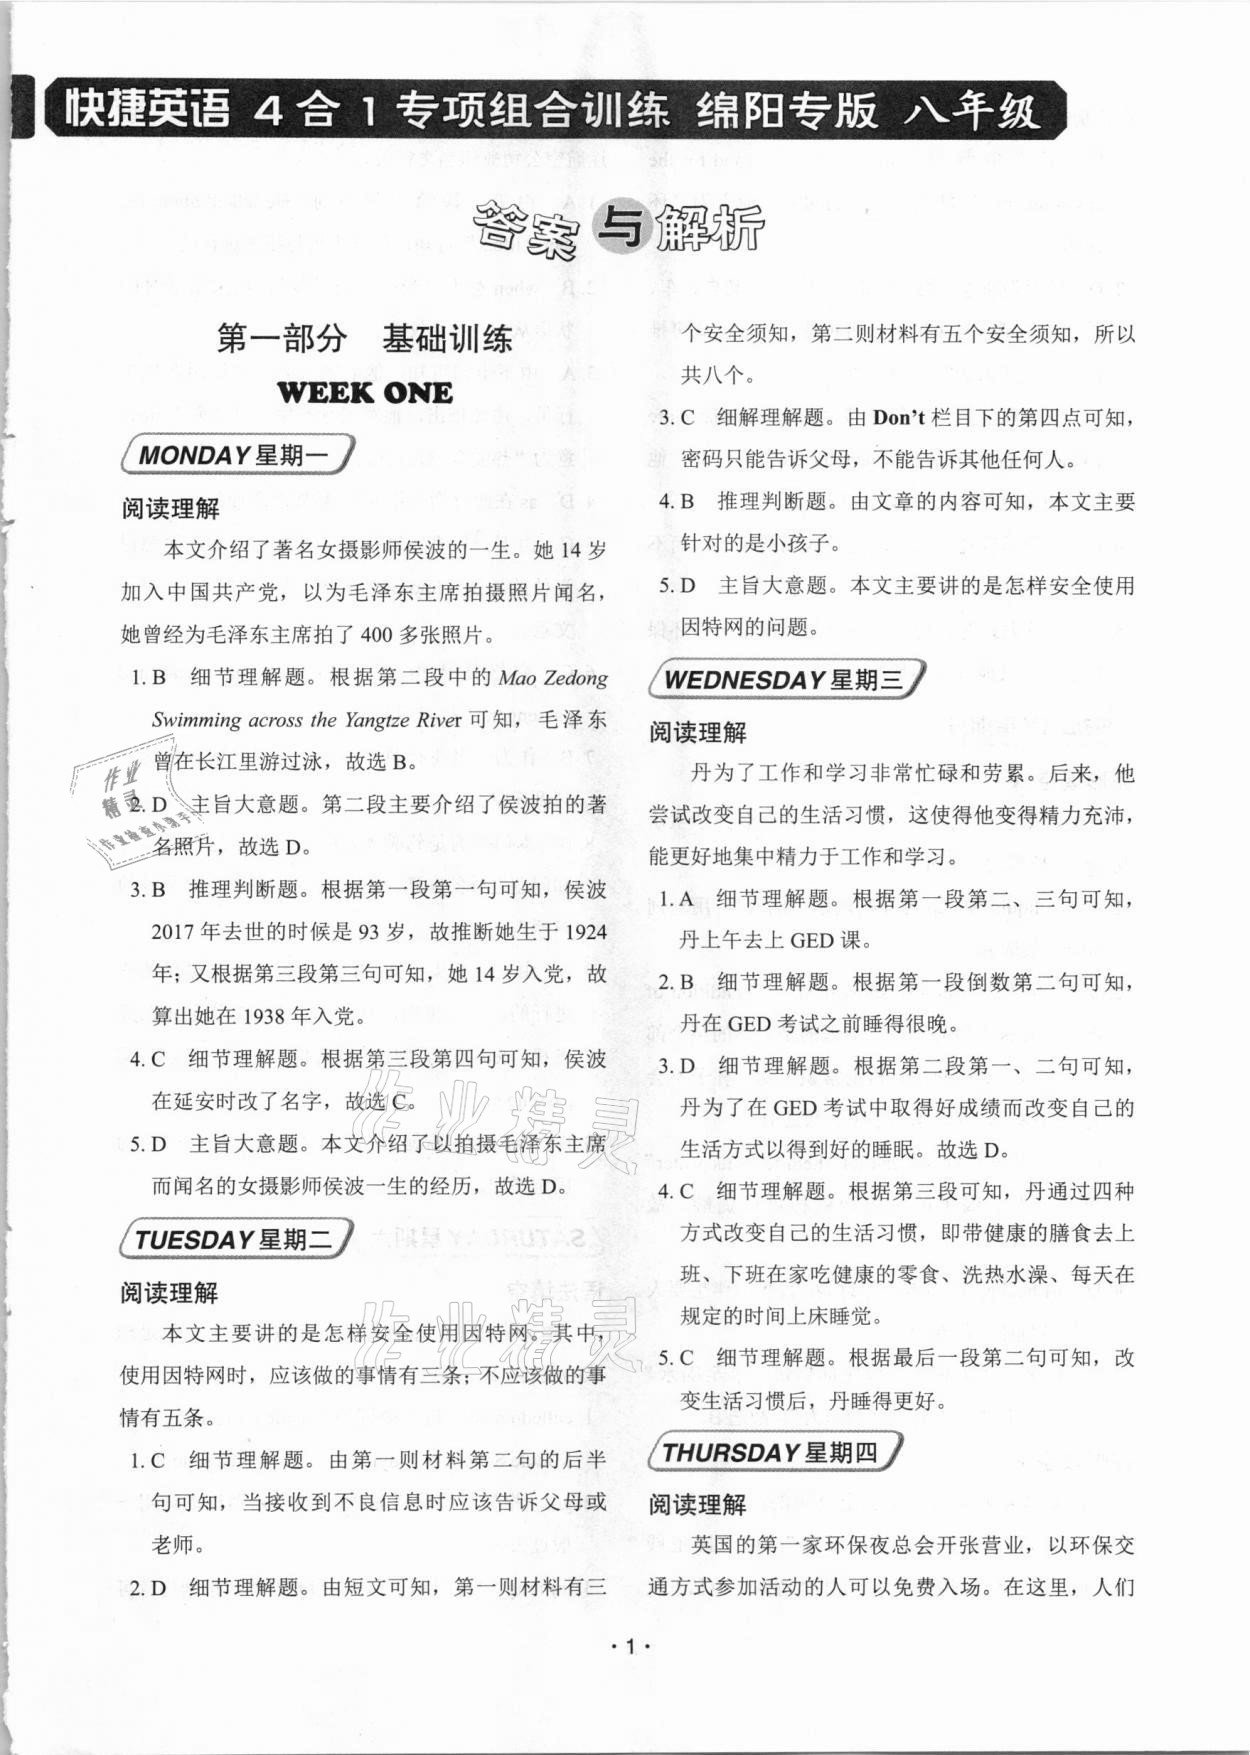 快捷英语 4合1专项组合训练 绵阳专版 八年级
答案与解析
第一部分 基础训练
WEEK ONE
MONDAY 星期一
阅读理解
本文介绍了著名女摄影师侯波的一生。她 14 岁
加入中国共产党，以为毛泽东主席拍摄照片闻名，
她曾经为毛泽东主席拍了 400 多张照片。
1. B 细节理解题。根据第二段中的 Mao Zedong
Swimming across the Yangtze River 可知，毛泽东
曾在长江里游过泳，故选 B。
2. D 主旨大意题。第二段主要介绍了侯波拍的著
名照片，故选 D。
3. B 推理判断题。根据第一段第一句可知，侯波
2017 年去世的时候是 93 岁，故推断她生于 1924
年；又根据第三段第三句可知，她 14 岁入党，故
算出她在 1938 年入党。
4. C 细节理解题。根据第三段第四句可知，侯波
在延安时改了名字，故选 C。
5. D 主旨大意题。本文介绍了以拍摄毛泽东主席
而闻名的女摄影师侯波一生的经历，故选 D。
TUESDAY 星期二
阅读理解
本文主要讲的是怎样安全使用因特网。其中，
使用因特网时，应该做的事情有三条；不应该做的事
情有五条。
1. C 细节理解题。由第一则材料第二句的后半
句可知，当接收到不良信息时应该告诉父母或
老师。
2. D 细节理解题。由短文可知，第一则材料有三
个安全须知，第二则材料有五个安全须知，所以
共八个。
3. C 细解理解题。由 Don't 栏目下的第四点可知，
密码只能告诉父母，不能告诉其他任何人。
4. B 推理判断题。由文章的内容可知，本文主要
针对的是小孩子。
5. D 主旨大意题。本文主要讲的是怎样安全使用
因特网的问题。
WEDNESDAY 星期三
阅读理解
丹为了工作和学习非常忙碌和劳累。后来，他
尝试改变自己的生活习惯，这使得他变得精力充沛，
能更好地集中精力于工作和学习。
1. A 细节理解题。根据第一段第二、三句可知，
丹上午去上 GED 课。
2. B 细节理解题。根据第一段倒数第二句可知，
丹在 GED 考试之前睡得很晚。
3. D 细节理解题。根据第二段第一、二句可知，
丹为了在 GED 考试中取得好成绩而改变自己的
生活方式以得到好的睡眠。故选 D。
4. C 细节理解题。根据第三段可知，丹通过四种
方式改变自己的生活习惯，即带健康的膳食去上
班、下班在家吃健康的零食、洗热水澡、每天在
规定的时间上床睡觉。
5. C 细节理解题。根据最后一段第二句可知，改
变生活习惯后，丹睡得更好。
THURSDAY 星期四
阅读理解
英国的第一家环保夜总会开张营业，以环保交
通方式参加活动的人可以免费入场。在这里，人们
· 1 ·
作业
精灵
作业检查小助手
作业精灵
作业精灵